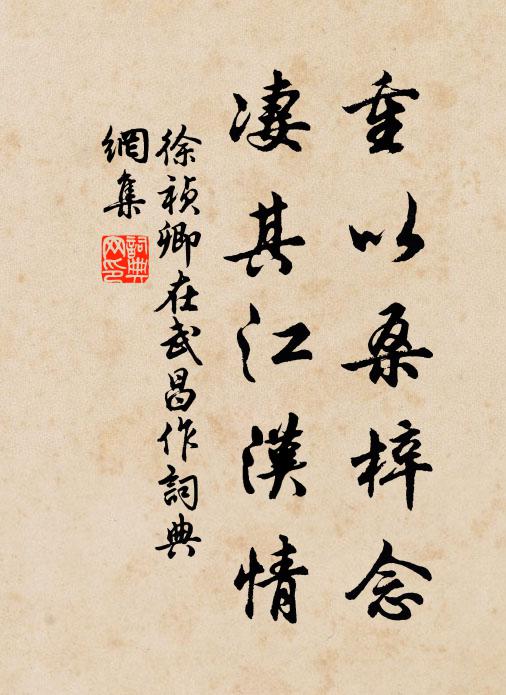 重以桑梓念
凄其江漢情
徐禎卿在武昌作詞典
網集
詞典
网印